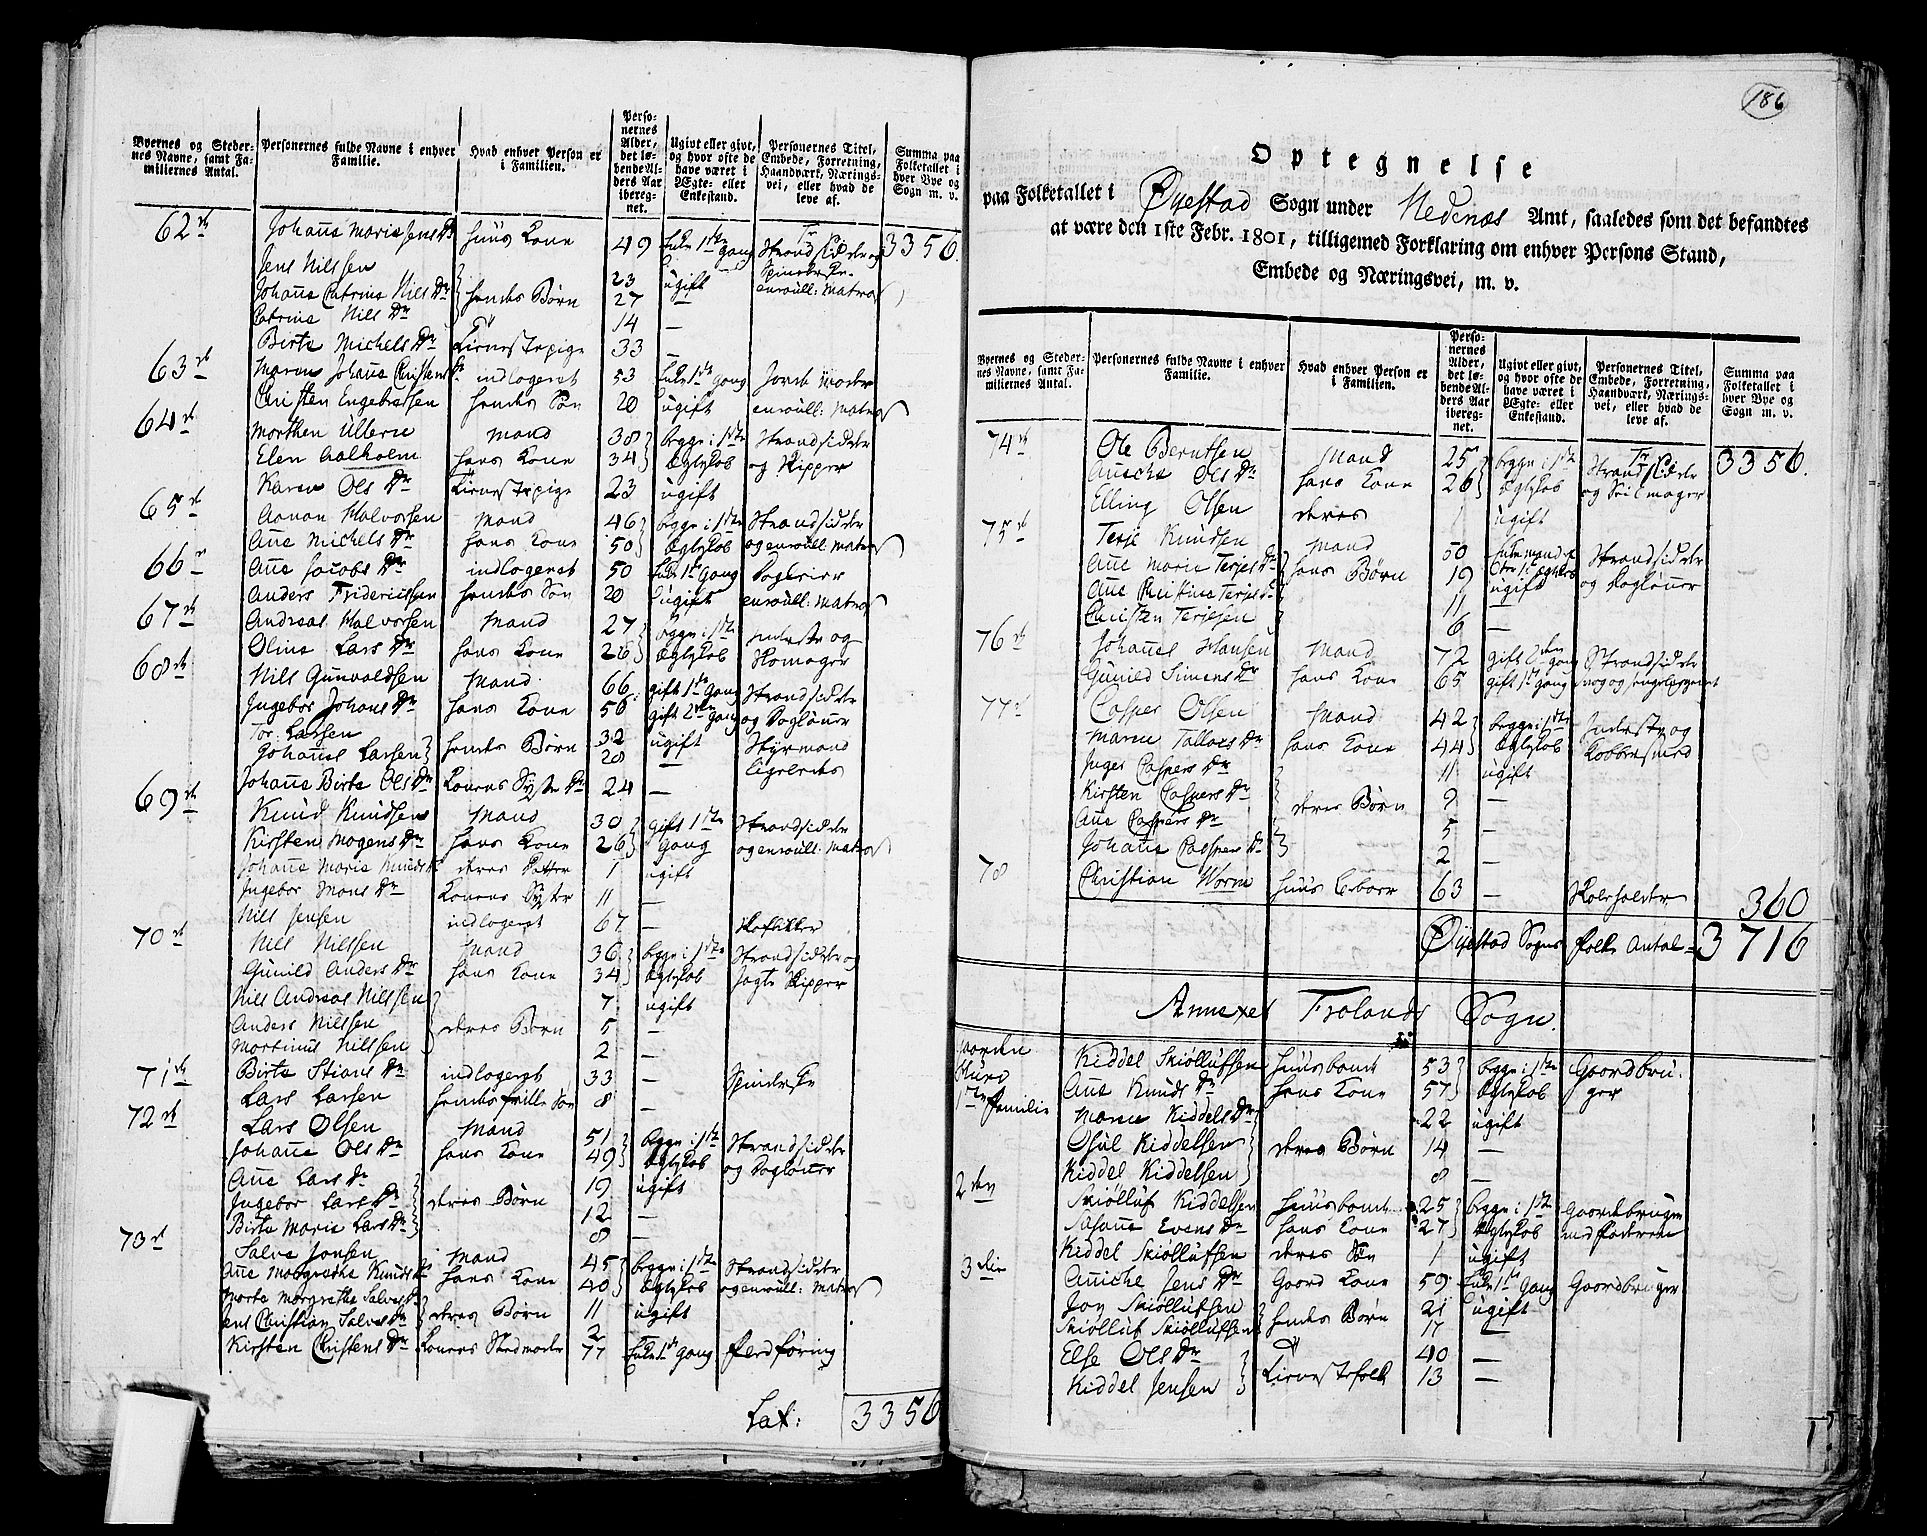 Byernes og Steder-
nes Navne, samt Fa-
miliernes Antal.
Personernes fulde Navne i enhver
Familie.
Hvad enhver Person er
i Familien.
Perso-
nernes
Alder,
det lø-
bende Al-
ders Aar
ibereg-
net.
Ugivt eller givt,
og hvor ofte de
have været i
Ægte- eller
Enkestand.
Personernes Titel,
Embede, Forretning,
Haandværk, Nærings-
vei, eller hvad de
leve af.
Summa paa
Folketallet i
hver Bye og
Sogn m. v.
Tr
62de Johanne Marie Jens Dr huus Kone 49 Enke 1ste Gang Strandsidder og 3356.
Spinderske
Jens Nilssen 23 ugift enroull: Matros
Johanne Catrine Nils Dr hendes Børn 27 —
Catrine Nils Dr 14 —
Birte Michels Dr Tienestepige 33 —
63de Maren Johanne Christens Dr indlogeret 53 Enke 1ste Gang Jorde Moder
Christen Engebretsen hendes Søn 20 ugift enroull: Matros
64de Morthen Ullerie Mand 38 begge i 1ste Strandsidder
Elen Aalholm hans Kone 34 Ægteskab og Skipper
Karen Ols Dr Tienestepige 23 ugift
65de Aanon Halvorsen Mand 46 begge i 1ste Strandsidder
Anne Michels Dr hans Kone 50 Ægteskab og enroull: Matros
66de Anne Jacobs Dr indlogeret 50 Enke 1ste Gang
Anders Friderichsen hendes Søn 20 ugift enroull: Matros
67de Andreas Halvorsen Mand 27 begge i 1ste Inderste og
Oline Lars Dr hans Kone 26 Ægteskab Skomager
68de Nils Gunvaldsen Mand 66 gift 1ste Gang Strandsidder
Ingebor Johans Dr hans Kone 56 gift 2den Gang og Dagløner
Tor Larsen 32 ugift Styrmand
Johannes Larsen hendes Børn 28 — ligeledes
Johanne Birte Ols Dr Konens Syster Dr 24 —
69de Knud Knudsen Mand 30 gift 1ste Strandsidder
Kirsten Mogens Dr hans Kone 26 Gang og enroull: Matros
Johanne Marie Knuds Dr deres Datter 1 ugift
Ingebor Mons Dr Konens Syster 11 —
Nils Jensen indlogeret 67 — Skoflikker
70de Nils Nilssen Mand 36 begge i 1ste Strandsidder og
Gunild Anders Dr hans Kone 34 Ægteskab Jagte Skipper
Nils Andreas Nilssen 7 ugift
Anders Nilssen deres Børn 5 —
Mortinus Nilssen 2 —
71de Birte Stians Dr indlogeret 33 — Spinderske
Lars Larsen hendes frille Søn 8 —
72de Lars Olsen Mand 51 begge i 1ste Strandsidder
Johanne Ols Dr hans Kone 49 Ægteskab og Dagløner
Anne Lars Dr 19 ugift
Ingebor Lars Dr deres Børn 12 —
Birte Marie Lars Dr 8 —
73de Salve Jonsen Mand 45 begge i 1ste Strandsidder
Anne Margrethe Knuds Dr hans Kone 40 Ægteskab og enroull: Matros
Marte Margrethe Salves Dr 11 ugift
Jens Christian Salves Dr deres Børn 2
Kirsten Christens Dr Konens Stedmoder 77 Enke 1ste Gang Føderføring
Lat: 3356
186
Optegnelse
paa Folketallet i Øyestad Sogn under Nedenæs Amt, saaledes som det befandtes
at være den 1ste Febr. 1801, tilligemed Forklaring om enhver Persons Stand,
Embede og Næringsvei, m. v.
Byernes og Steder-
nes Navne, samt Fa-
miliernes Antal.
Personernes fulde Navne i enhver
Familie.
Hvad enhver Person er
i Familien.
Perso-
nernes
Alder,
det lø-
bende Al-
ders Aar
ibereg-
net.
Ugivt eller givt,
og hvor ofte de
have været i
Ægte- eller
Enkestand.
Personernes Titel,
Embede, Forretning,
Haandværk, Nærings-
vei, eller hvad de
leve af.
Summa paa
Folketallet i
hver Bye og
Sogn m. v.
Tr
74de Ole Berntsen Mand 25 begge i 1ste Strandsidder 3356.
Ansche Ols Dr hans Kone 26 Ægteskab og Seilmager
Elling Olsen deres 1 ugift
75de Terje Knudsen Mand 50 Enkemand Strandsidder
Anne Marie Terjes Dr hans Børn 19 ugift og Dagløner
Anne Christine Terjes Dr 11 —
Christen Terjesen 6 —
76de Johannes Hansen Mand 72 gift 2den Gang Strandsidder
Gunild Simens Dr hans Kone 65 gift 1ste Gang og sengeliggende
77de Casper Olsen Mand 42 begge i 1ste Inderste og
Maren Tallacs Dr hans Kone 44 Ægteskab Kobbersmed
Inger Caspers Dr 11 ugift
Kirsten Caspers Dr deres Børn 9 —
Anne Caspers Dr 5 —
Johanne Caspers Dr 2 —
78 Christian Worm huus 63 — Skoleholder 360
Øyestad Sogns folke Antal = 3716
Annexet Frolands Sogn.
Gaarden
1ste Familie Kiddel Skiøllufsen Huusbond 53 begge i 1ste Gaardbru-
Anne Knuds Dr hans Kone 57 Ægteskab ger
Maren Kiddels Dr 22 ugift
Osul Kiddelsen deres Børn 14 —
Kiddel Kiddelsen 8 —
2den Skiølluf Kiddelsen Huusbond 25 begge i 1ste Gaardbruger
Susanne Evens Dr hans Kone 27 Ægteskab med Faderen
Kiddel Skiøllufsen deres Søn 1 ugift
3die Anniche Jens Dr Gaard Kone 59 Enke 1ste Gang Gaardbruger
Jon Skiøllufsen hendes Børn 21 ugift
Skiølluf Skiøllufsen 17 —
Else Ols Dr 40 —
Kiddel Jensen Tienestefolk 13 —